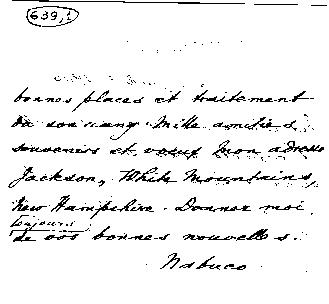 639,1
bonnes places et traitement
du son rang. Mille amitiés
souvenirs et voeux. Mon adresse
Jackson, White Mountains,
New Hampshire. Donner moi
toujours
de vos bonnes nouvelles.
Nabuco